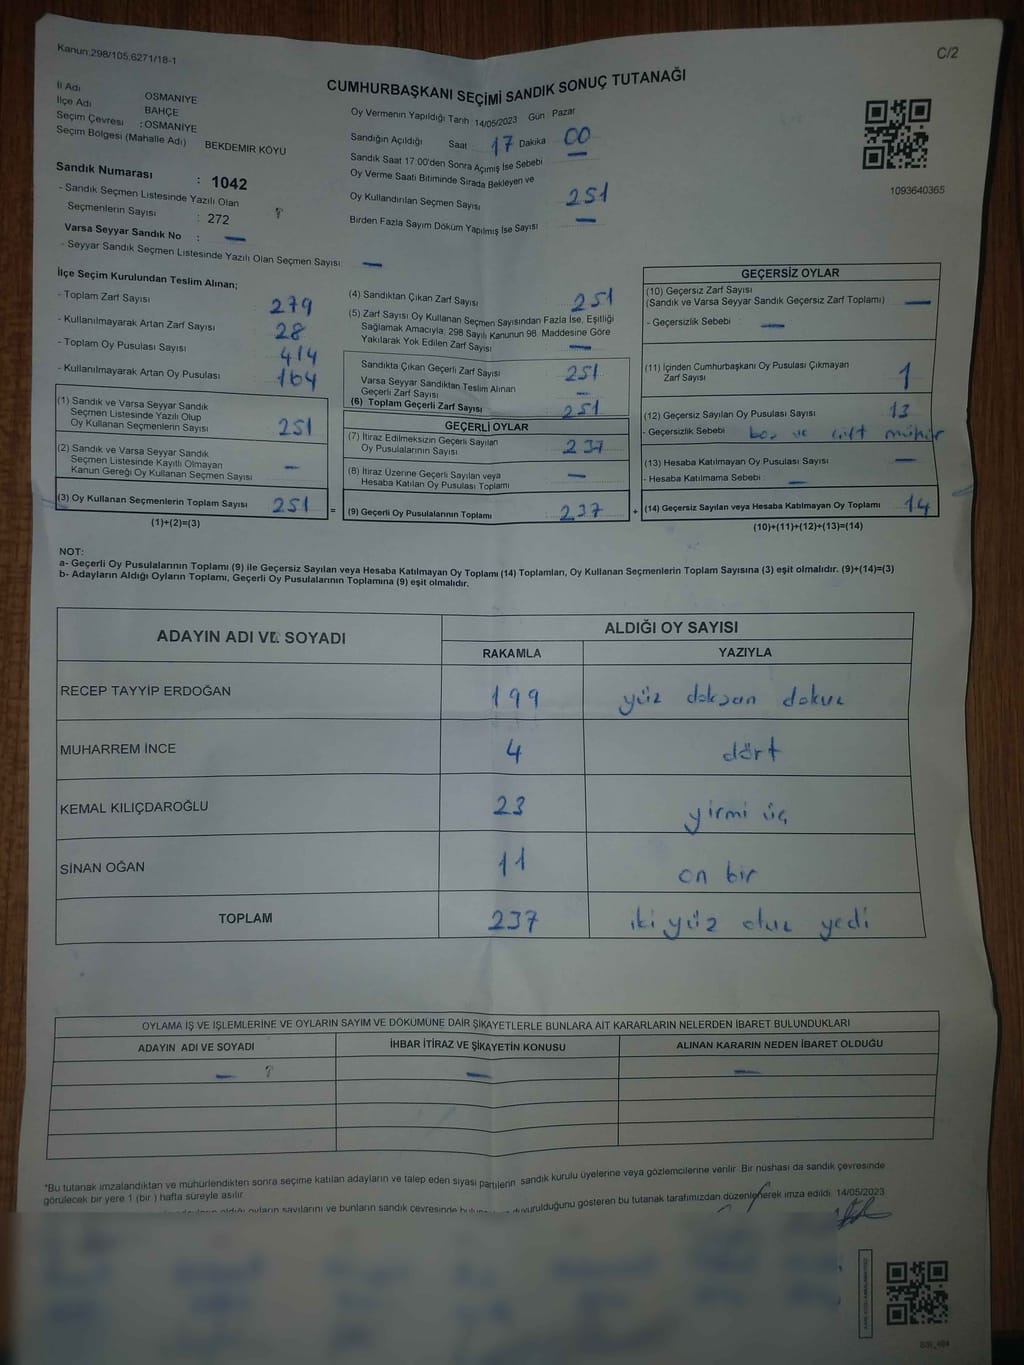 Kanun:298/105,6271/18-1
C/2
CUMHURBAŞKANI SEÇİMİ SANDIK SONUÇ TUTANAĞI
İl Adı OSMANİYE
İlçe Adı BAHÇE
Seçim Çevresi : OSMANİYE
Seçim Bölgesi (Mahalle Adı) BEKDEMİR KÖYÜ
Oy Vermenin Yapıldığı Tarih 14/05/2023 Gün Pazar
Sandığın Açıldığı Saat 17 Dakika 00
Sandık Saat 17:00'den Sonra Açımış İse Sebebi —
Oy Verme Saati Bitiminde Sırada Bekleyen ve
Oy Kullandırılan Seçmen Sayısı 251
Birden Fazla Sayım Döküm Yapılmış İse Sayısı —
1093640365
Sandık Numarası : 1042
- Sandık Seçmen Listesinde Yazılı Olan
Seçmenlerin Sayısı : 272
Varsa Seyyar Sandık No : —
- Seyyar Sandık Seçmen Listesinde Yazılı Olan Seçmen Sayısı —
İlçe Seçim Kurulundan Teslim Alınan;
- Toplam Zarf Sayısı 279
- Kullanılmayarak Artan Zarf Sayısı 28
- Toplam Oy Pusulası Sayısı 414
- Kullanılmayarak Artan Oy Pusulası 164
(1) Sandık ve Varsa Seyyar Sandık
Seçmen Listesinde Yazılı Olup
Oy Kullanan Seçmenlerin Sayısı 251
(2) Sandık ve Varsa Seyyar Sandık
Seçmen Listesinde Kayıtlı Olmayan
Kanun Gereği Oy Kullanan Seçmen Sayısı —
(3) Oy Kullanan Seçmenlerin Toplam Sayısı 251
(1)+(2)=(3)
=
(4) Sandıktan Çıkan Zarf Sayısı 251
(5) Zarf Sayısı Oy Kullanan Seçmen Sayısından Fazla İse, Eşitliği
Sağlamak Amacıyla, 298 Sayılı Kanunun 98. Maddesine Göre
Yakılarak Yok Edilen Zarf Sayısı —
Sandıkta Çıkan Geçerli Zarf Sayısı 251
Varsa Seyyar Sandıktan Teslim Alınan
Geçerli Zarf Sayısı —
(6) Toplam Geçerli Zarf Sayısı 251
GEÇERLİ OYLAR
(7) İtiraz Edilmeksizin Geçerli Sayılan
Oy Pusulalarının Sayısı 237
(8) İtiraz Üzerine Geçerli Sayılan veya
Hesaba Katılan Oy Pusulası Toplamı —
(9) Geçerli Oy Pusulalarının Toplamı 237
+
GEÇERSİZ OYLAR
(10) Geçersiz Zarf Sayısı
(Sandık ve Varsa Seyyar Sandık Geçersiz Zarf Toplamı) —
- Geçersizlik Sebebi : —
(11) İçinden Cumhurbaşkanı Oy Pusulası Çıkmayan
Zarf Sayısı 1
(12) Geçersiz Sayılan Oy Pusulası Sayısı 13
- Geçersizlik Sebebi boş ve çift mühür
(13) Hesaba Katılmayan Oy Pusulası Sayısı —
- Hesaba Katılmama Sebebi : —
(14) Geçersiz Sayılan veya Hesaba Katılmayan Oy Toplamı 14
(10)+(11)+(12)+(13)=(14)
NOT:
a- Geçerli Oy Pusulalarının Toplamı (9) ile Geçersiz Sayılan veya Hesaba Katılmayan Oy Toplamı (14) Toplamları, Oy Kullanan Seçmenlerin Toplam Sayısına (3) eşit olmalıdır. (9)+(14)=(3)
b- Adayların Aldığı Oyların Toplamı, Geçerli Oy Pusulalarının Toplamına (9) eşit olmalıdır.
ADAYIN ADI VE SOYADI
ALDIĞI OY SAYISI
RAKAMLA YAZIYLA
RECEP TAYYİP ERDOĞAN 199 yüz doksan dokuz
MUHARREM İNCE 4 dört
KEMAL KILIÇDAROĞLU 23 yirmi üç
SİNAN OĞAN 11 on bir
TOPLAM 237 iki yüz otuz yedi
OYLAMA İŞ VE İŞLEMLERİNE VE OYLARIN SAYIM VE DÖKÜMÜNE DAİR ŞİKAYETLERLE BUNLARA AİT KARARLARIN NELERDEN İBARET BULUNDUKLARI
ADAYIN ADI VE SOYADI İHBAR İTİRAZ VE ŞİKAYETİN KONUSU ALINAN KARARIN NEDEN İBARET OLDUĞU
— — —
*Bu tutanak imzalandıktan ve mühürlendikten sonra seçime katılan adayların ve talep eden siyasi partilerin sandık kurulu üyelerine veya gözlemcilerine verilir. Bir nüshası da sandık çevresinde
görülecek bir yere 1 (bir ) hafta süreyle asılır.
oyların sayılarını ve bunların sandık çevresinde duyurulduğunu gösteren bu tutanak tarafımızdan düzenlenerek imza edildi. 14/05/2023